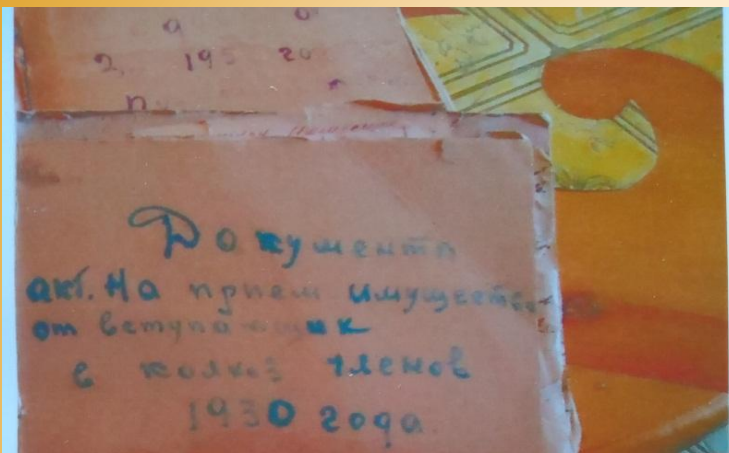 2, 195 го
Документы
акт. На прием имущества
от вступающих
в колхоз членов
1930 года.